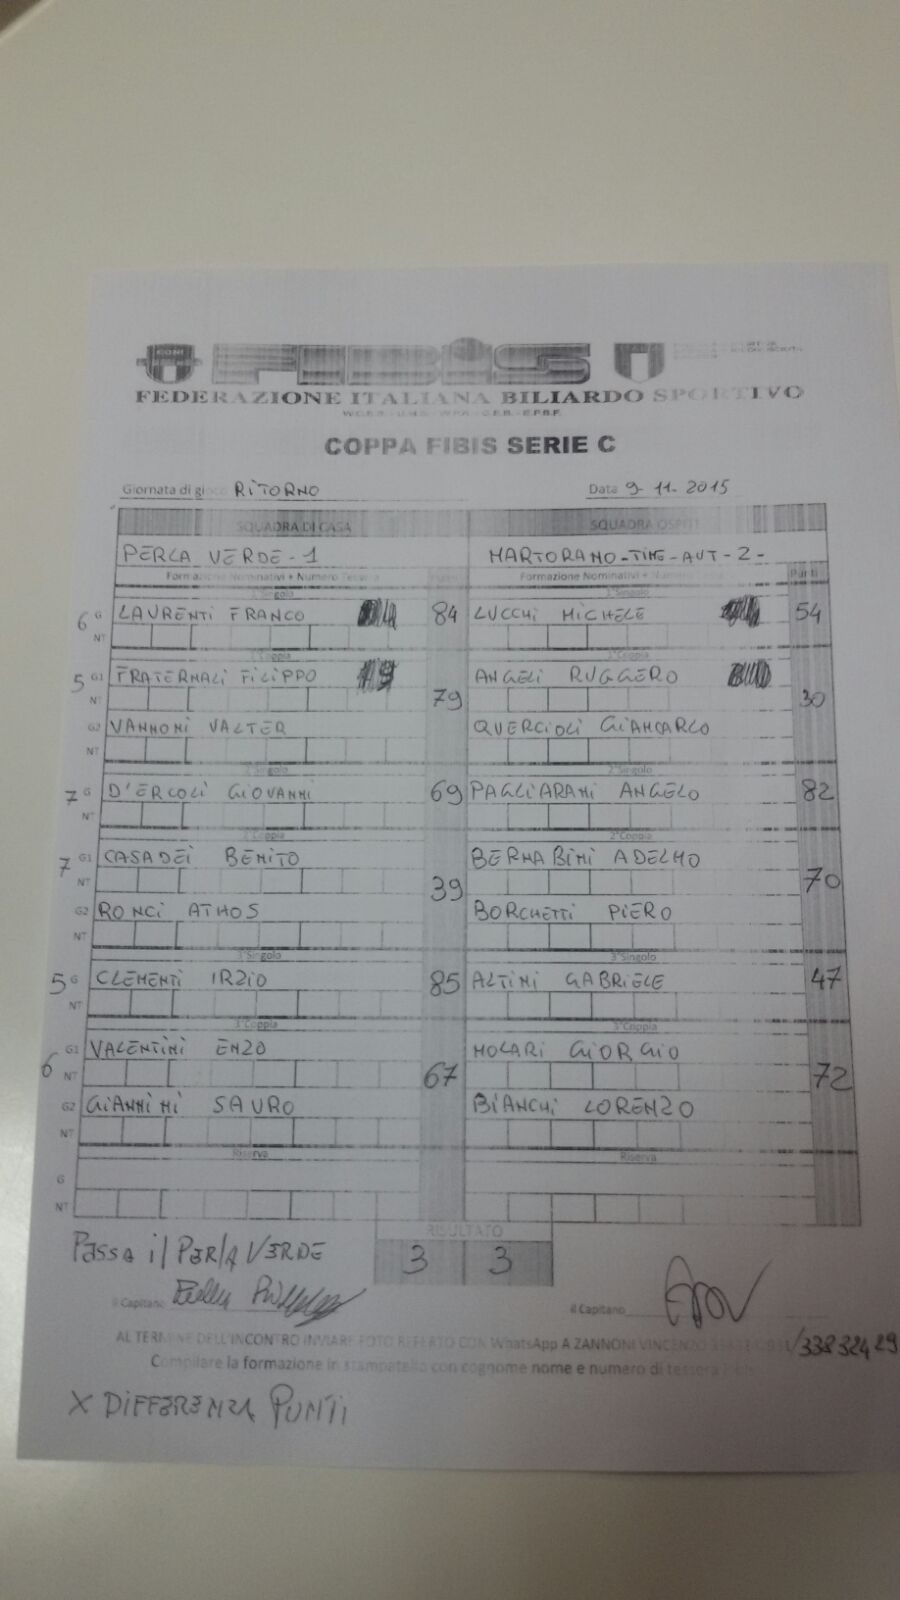 CONI
FIBIS
FEDERAZIONE ITALIANA BILIARDO SPORTIVO
COPPA FIBIS SERIE C
Giornata di gioco RITORNO Data 9-11-2015
SQUADRA DI CASA SQUADRA OSPITI
PERLA VERDE-1 MARTORANO-TIME-AUT-2-
Formazione Nominativi + Numero Tessera Formazione Nominativi + Numero Punti
1°Singolo 1°Singolo
6 G LAURENTI FRANCO 84 LUCCHI MICHELE 54
NT
1°Coppia 1°Coppia
5 G1 FRATERNALI FILIPPO ANGELI RUGGERO
NT 79 30
G2 VANNONI VALTER QUERCIOLI GIANCARLO
NT
2°Singolo 2°Singolo
7 G D'ERCOLI GIOVANNI 69 PAGLIARANI ANGELO 82
NT
2°Coppia 2°Coppia
7 G1 CASADEI BENITO BERNABINI ADELMO
NT 39 70
G2 RONCI ATHOS BORCHETTI PIERO
NT
3°Singolo 3°Singolo
5 G CLEMENTI IRZIO 85 ALTINI GABRIELE 47
NT
3°Coppia 3°Coppia
G1 VALENTINI ENZO MOLARI GIORGIO
6 NT 67 72
G2 GIANNINI SAURO BIANCHI LORENZO
NT
Riserva Riserva
G
NT
RISULTATO
Passa il PERLA VERDE 3 3
il Capitano il Capitano
AL TERMINE DELL'INCONTRO INVIARE FOTO REFERTO CON WhatsApp A ZANNONI VINCENZO /33832429
Compilare la formazione in stampatello con cognome nome e numero di tessera
X DIFFERENZA PUNTI